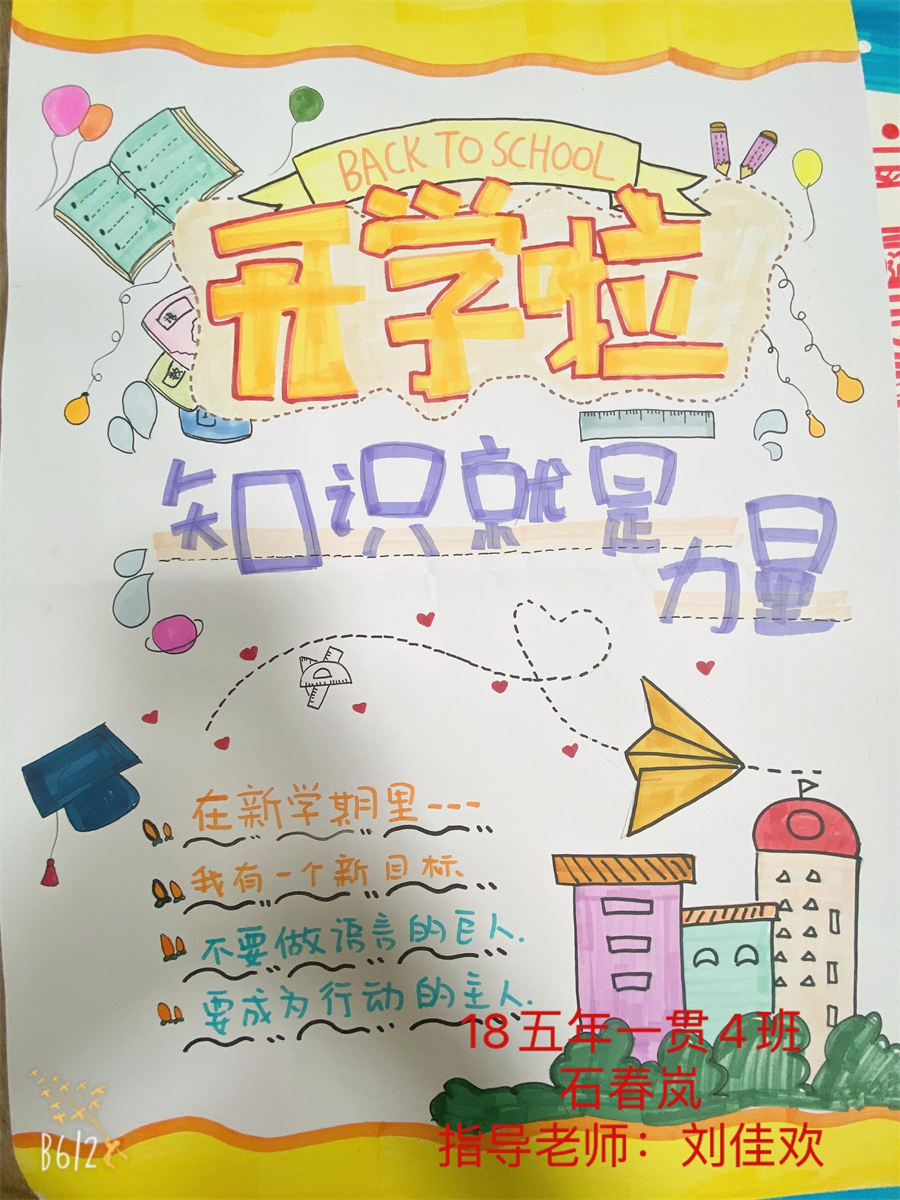 BACK TO SCHOOL
开学啦
知识就是
力量
在新学期里---
我有一个新目标
不要做语言的巨人.
要成为行动的主人.
18五年一贯4班
石春岚
指导老师：刘佳欢
B612